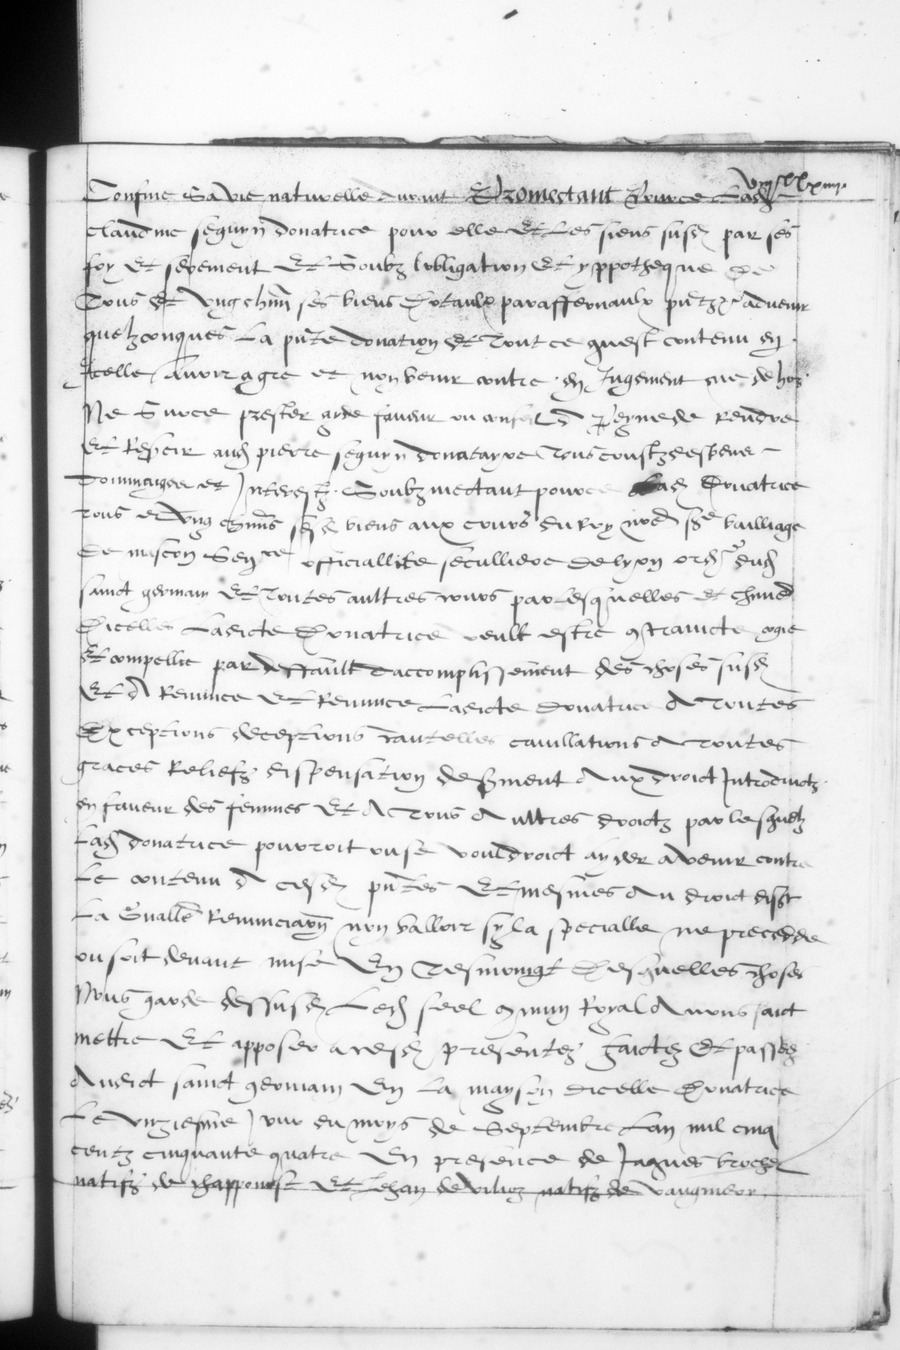 confine sa vie naturelle durant Promectant pource lad
Claudine seguyn donatrice pour elle Et les siens susd par ses
foy Et serement Et soubz lobligation Et ypotheque de
Tous Et ung chun ses biens dotaulx paraffernaulx pntz advenir
quelzconques La pnte donation Et tout ce quest contenu en
Icelle avoir agre et non venir contre en Jugement ne dehors
Ne sur ce prester ayde faveur ou conseil peyne de Rendre
Et aud pierre seguyn donatayre tous coustz despens
Dommaiges et Interestz Soubzmectant pource lad donatrice
tous et ung chuns ses biens aux cours du Roy nred sr bailliage
De mascon officiallite seculliere de lyon dud
sainct germain Et toutes aultres cours par lesquelles et chune
Dicelles Ladicte donatrice veult estre contraincte
Et compellie par deffault daccomplissement des choses susd
Et A Renunce Et Renunce Ladicte donatrice A toutes
Exceptions deceptions cautelles cavillations A toutes
graces Reliefz dispensation de serment Aux droict Introduictz
en faveur des femmes Et A tous Aultres droictz par lesquelz
Lad donatrice pourroit ou se vouldroict ayder A venir contre
Le contenu A pntes Et mesmes Au droict disant
La gnalle Renunciation non valloir sy la specialle ne precedde
ou soit devant mise En tesmoingt Desquelles choses
Nous garde dessusd Led seel commun Royal Avons faict
mettre Et apposer a cesd presentes faictes Et passees
Audict sainct germain En La mayson dicelle donatrice
Le unziesme Jour du moys de Septembre Lan mil cinq
centz cinquante quatre En presence de Jaques brochet
natifz de chapponost Et Jehan de natifz de vaugneray